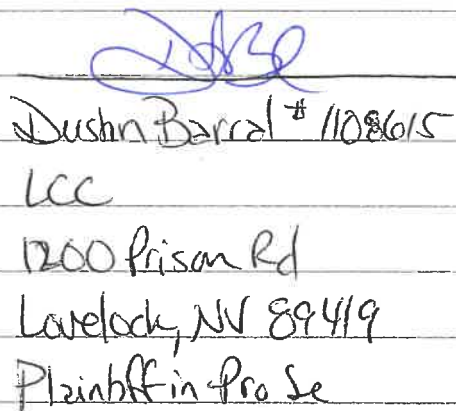 Dustin Barral # 1108615
LCC
1200 Prison Rd
Lovelock, NV 89419
Plaintiff in Pro Se